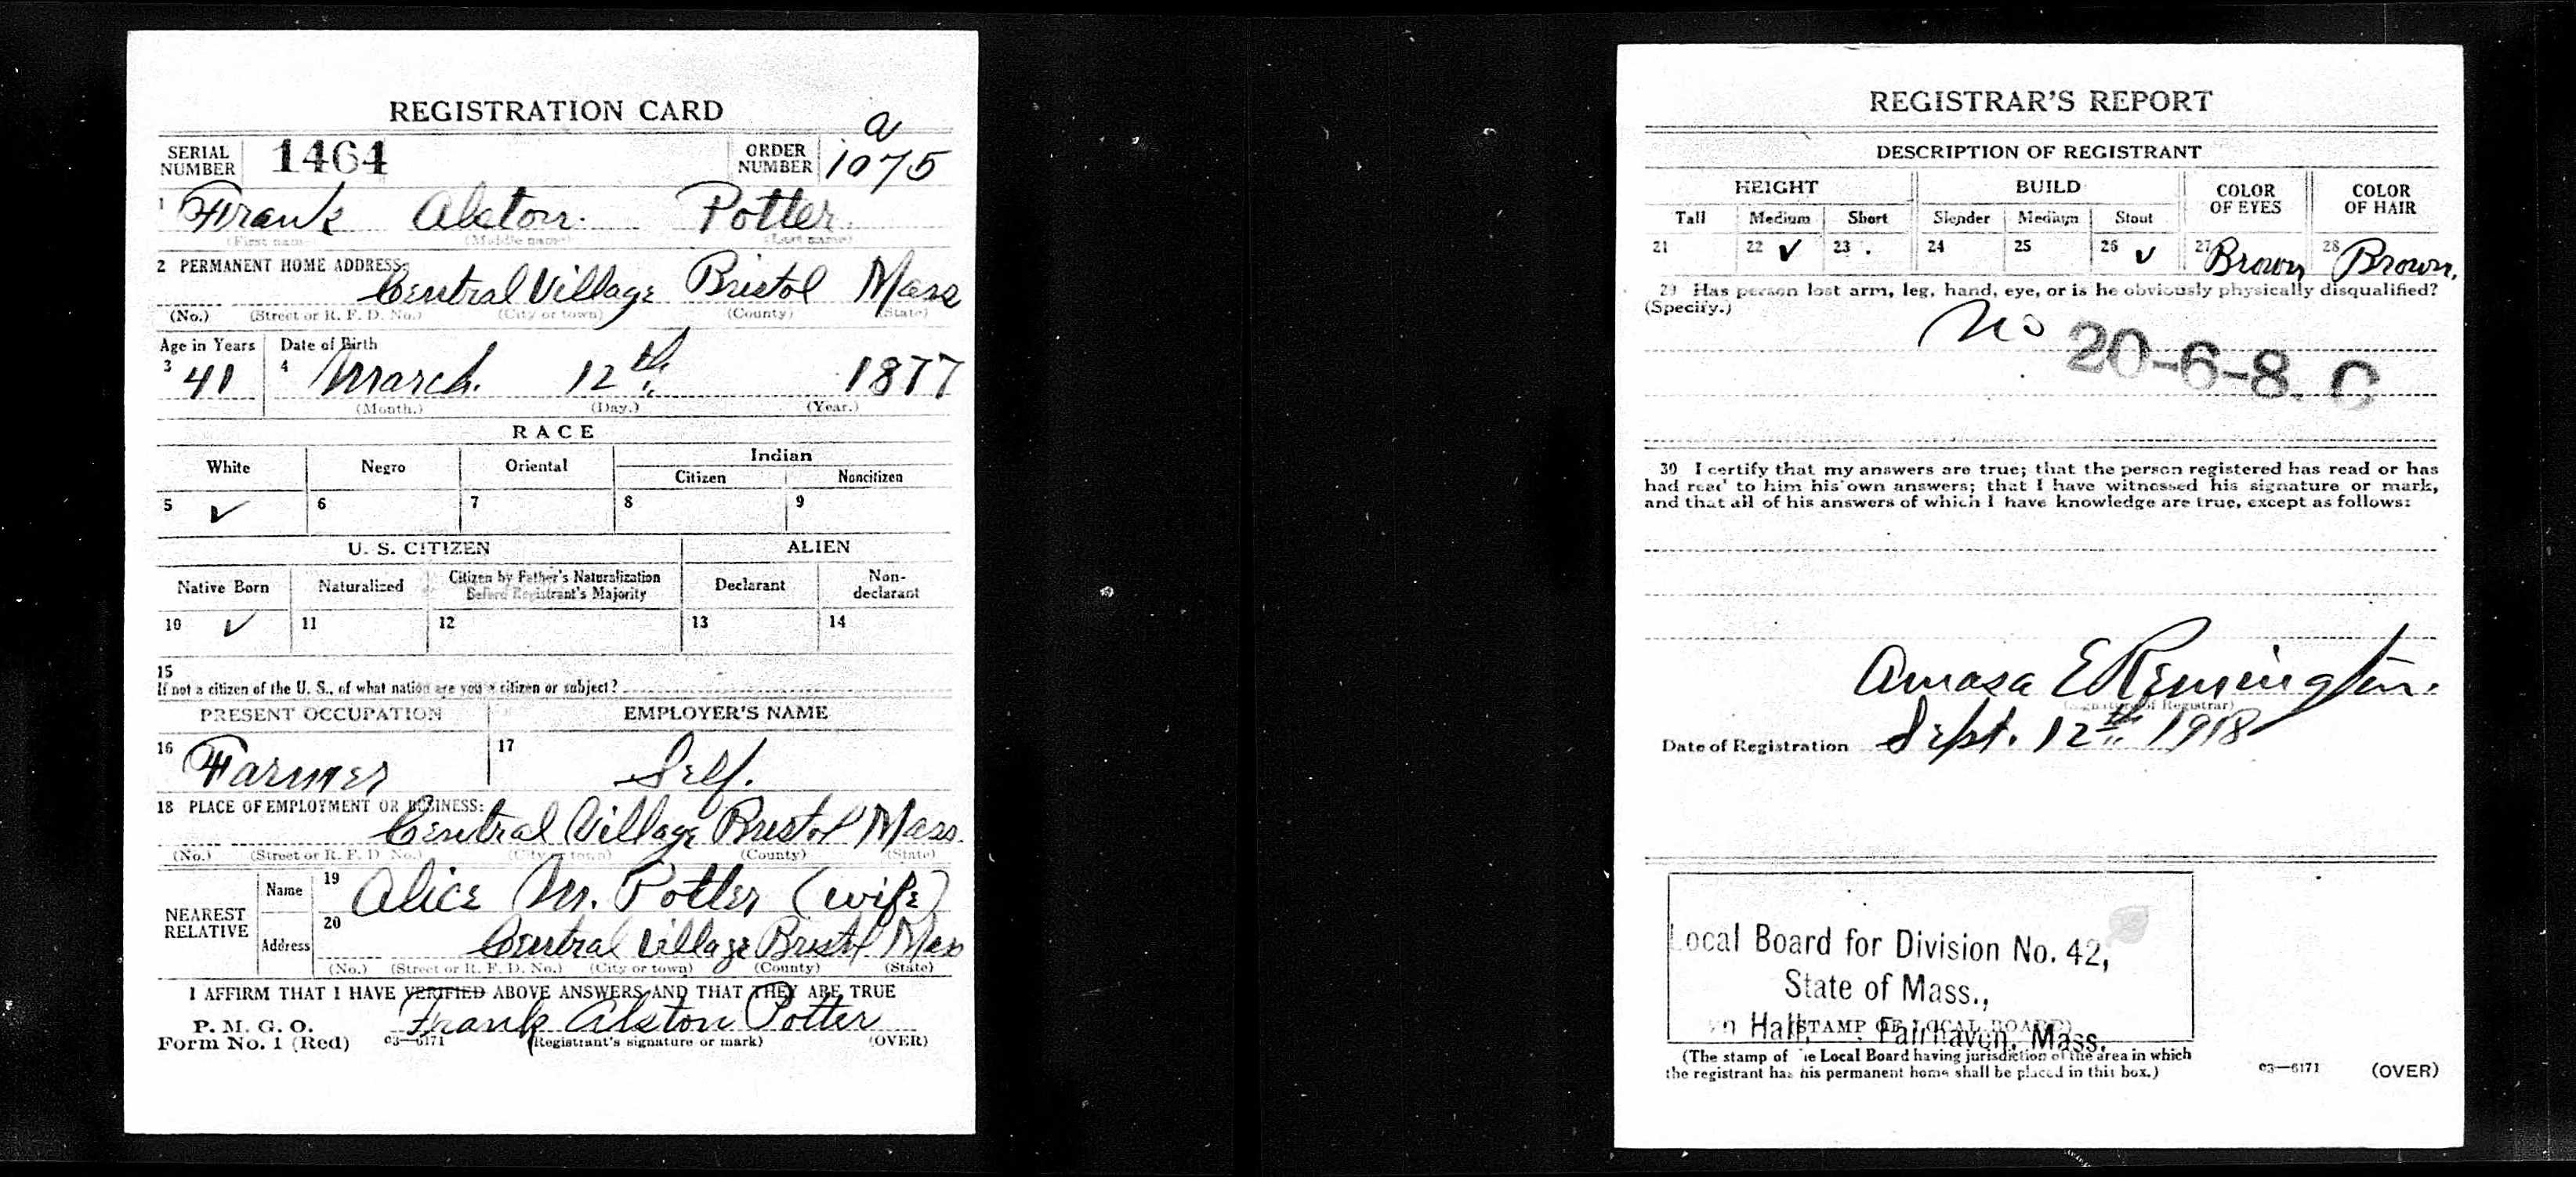 REGISTRATION CARD
SERIAL NUMBER 1464 ORDER NUMBER a 1075
1 Frank Alston Potter
(First name) (Middle name) (Last name)
2 PERMANENT HOME ADDRESS:
Central Village Bristol Mass
(No.) (Street or R. F. D. No.) (City or town) (County) (State)
Age in Years Date of Birth
3 41 4 March 12th 1877
(Month.) (Day.) (Year.)
RACE
White Negro Oriental Indian
Citizen Noncitizen
5 ✓ 6 7 8 9
U. S. CITIZEN ALIEN
Native Born Naturalized Citizen by Father's Naturalization Before Registrant's Majority Declarant Non-declarant
10 ✓ 11 12 13 14
15
If not a citizen of the U. S., of what nation are you a citizen or subject?
PRESENT OCCUPATION EMPLOYER'S NAME
16 Farmer 17 Self.
18 PLACE OF EMPLOYMENT OR BUSINESS:
Central Village Bristol Mass.
(No.) (Street or R. F. D. No.) (City or town) (County) (State)
NEAREST RELATIVE Name 19 Alice M. Potter (wife)
Address 20 Central Village Bristol Mass
(No.) (Street or R. F. D. No.) (City or town) (County) (State)
I AFFIRM THAT I HAVE VERIFIED ABOVE ANSWERS AND THAT THEY ARE TRUE
P. M. G. O.
Form No. 1 (Red) 03—6171 Frank Alston Potter
(Registrant's signature or mark) (OVER)
REGISTRAR'S REPORT
DESCRIPTION OF REGISTRANT
HEIGHT BUILD COLOR OF EYES COLOR OF HAIR
Tall Medium Short Slender Medium Stout
21 22 ✓ 23 24 25 26 ✓ 27 Brown 28 Brown.
29 Has person lost arm, leg, hand, eye, or is he obviously physically disqualified?
(Specify.) No
20-6-8. C
30 I certify that my answers are true; that the person registered has read or has
had read to him his own answers; that I have witnessed his signature or mark,
and that all of his answers of which I have knowledge are true, except as follows:
Amasa E Remington.
(Signature of Registrar)
Date of Registration Sept. 12th 1918
Local Board for Division No. 42,
State of Mass.,
Hall, Fairhaven, Mass.
(STAMP OF LOCAL BOARD)
(The stamp of the Local Board having jurisdiction of the area in which
the registrant has his permanent home shall be placed in this box.)
03—6171 (OVER)